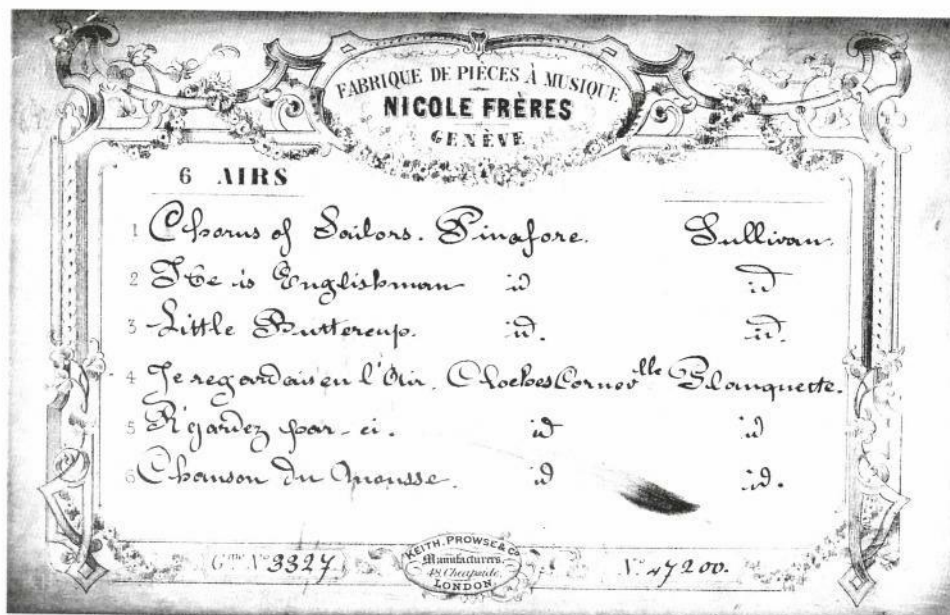 FABRIQUE DE PIÈCES À MUSIQUE
NICOLE FRÈRES
GENÈVE
6 AIRS
1 Chorus of Sailors. Pinafore. Sullivan.
2 He is Englishman id id
3 Little Buttercup. id. id.
4 Je regardais en l'Air. Cloches Cornevlle Planquette.
5 R'gardez par-ci. id id
6 Chanson du Mousse. id id.
Gme No 3327.
KEITH, PROWSE & Co
Manufacturers.
48 Cheapside,
LONDON.
No 47200.